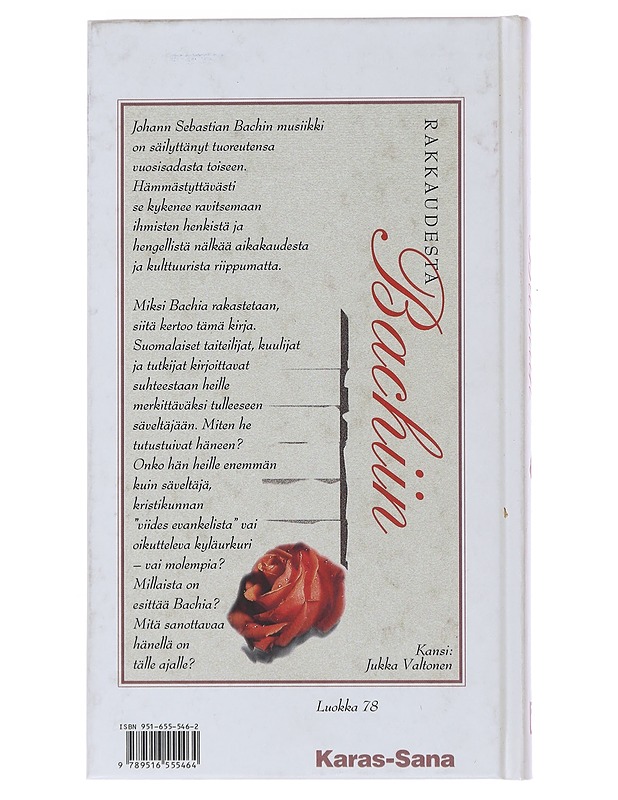 Johann Sebastian Bachin musiikki
on säilyttänyt tuoreutensa
vuosisadasta toiseen.
Hämmästyttävästi
se kykenee ravitsemaan
ihmisten henkistä ja
hengellistä nälkää aikakaudesta
ja kulttuurista riippumatta.
Miksi Bachia rakastetaan,
siitä kertoo tämä kirja.
Suomalaiset taiteilijat, kuulijat
ja tutkijat kirjoittavat
suhteestaan heille
merkittäväksi tulleeseen
säveltäjään. Miten he
tutustuivat häneen?
Onko hän heille enemmän
kuin säveltäjä,
kristikunnan
"viides evankelista" vai
oikutteleva kyläurkuri
– vai molempia?
Millaista on
esittää Bachia?
Mitä sanottavaa
hänellä on
tälle ajalle?
RAKKAUDESTA
Bachiin
Kansi:
Jukka Valtonen
Luokka 78
ISBN 951-655-546-2
9 789516 555464
Karas-Sana